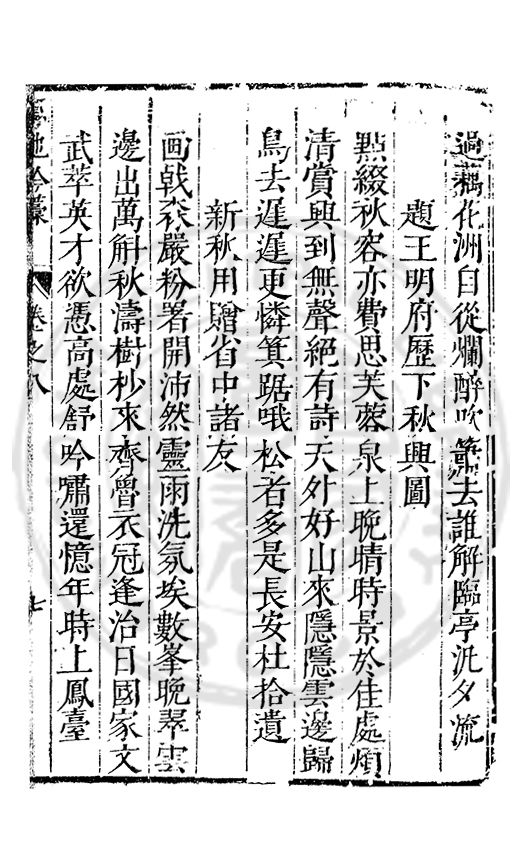 過藕花洲自從爛醉吹簫去誰解臨亭汎夕流
題王明府歷下秋興圖
點綴秋容亦費思芙蓉泉上晚晴時景於佳處煩
清賞興到無聲絕有詩天外好山來隱隱雲邊歸
鳥去遲遲更憐箕踞哦松者多是長安杜拾遺
新秋用贈省中諸友
画戟森嚴粉署開沛然靈雨洗氛埃數峯晚翠雲
邊出萬斛秋濤樹杪來齊魯衣冠逢治日國家文
武萃英才欲憑高處舒吟嘯還憶年時上鳳臺
池吟藁
卷之八
七